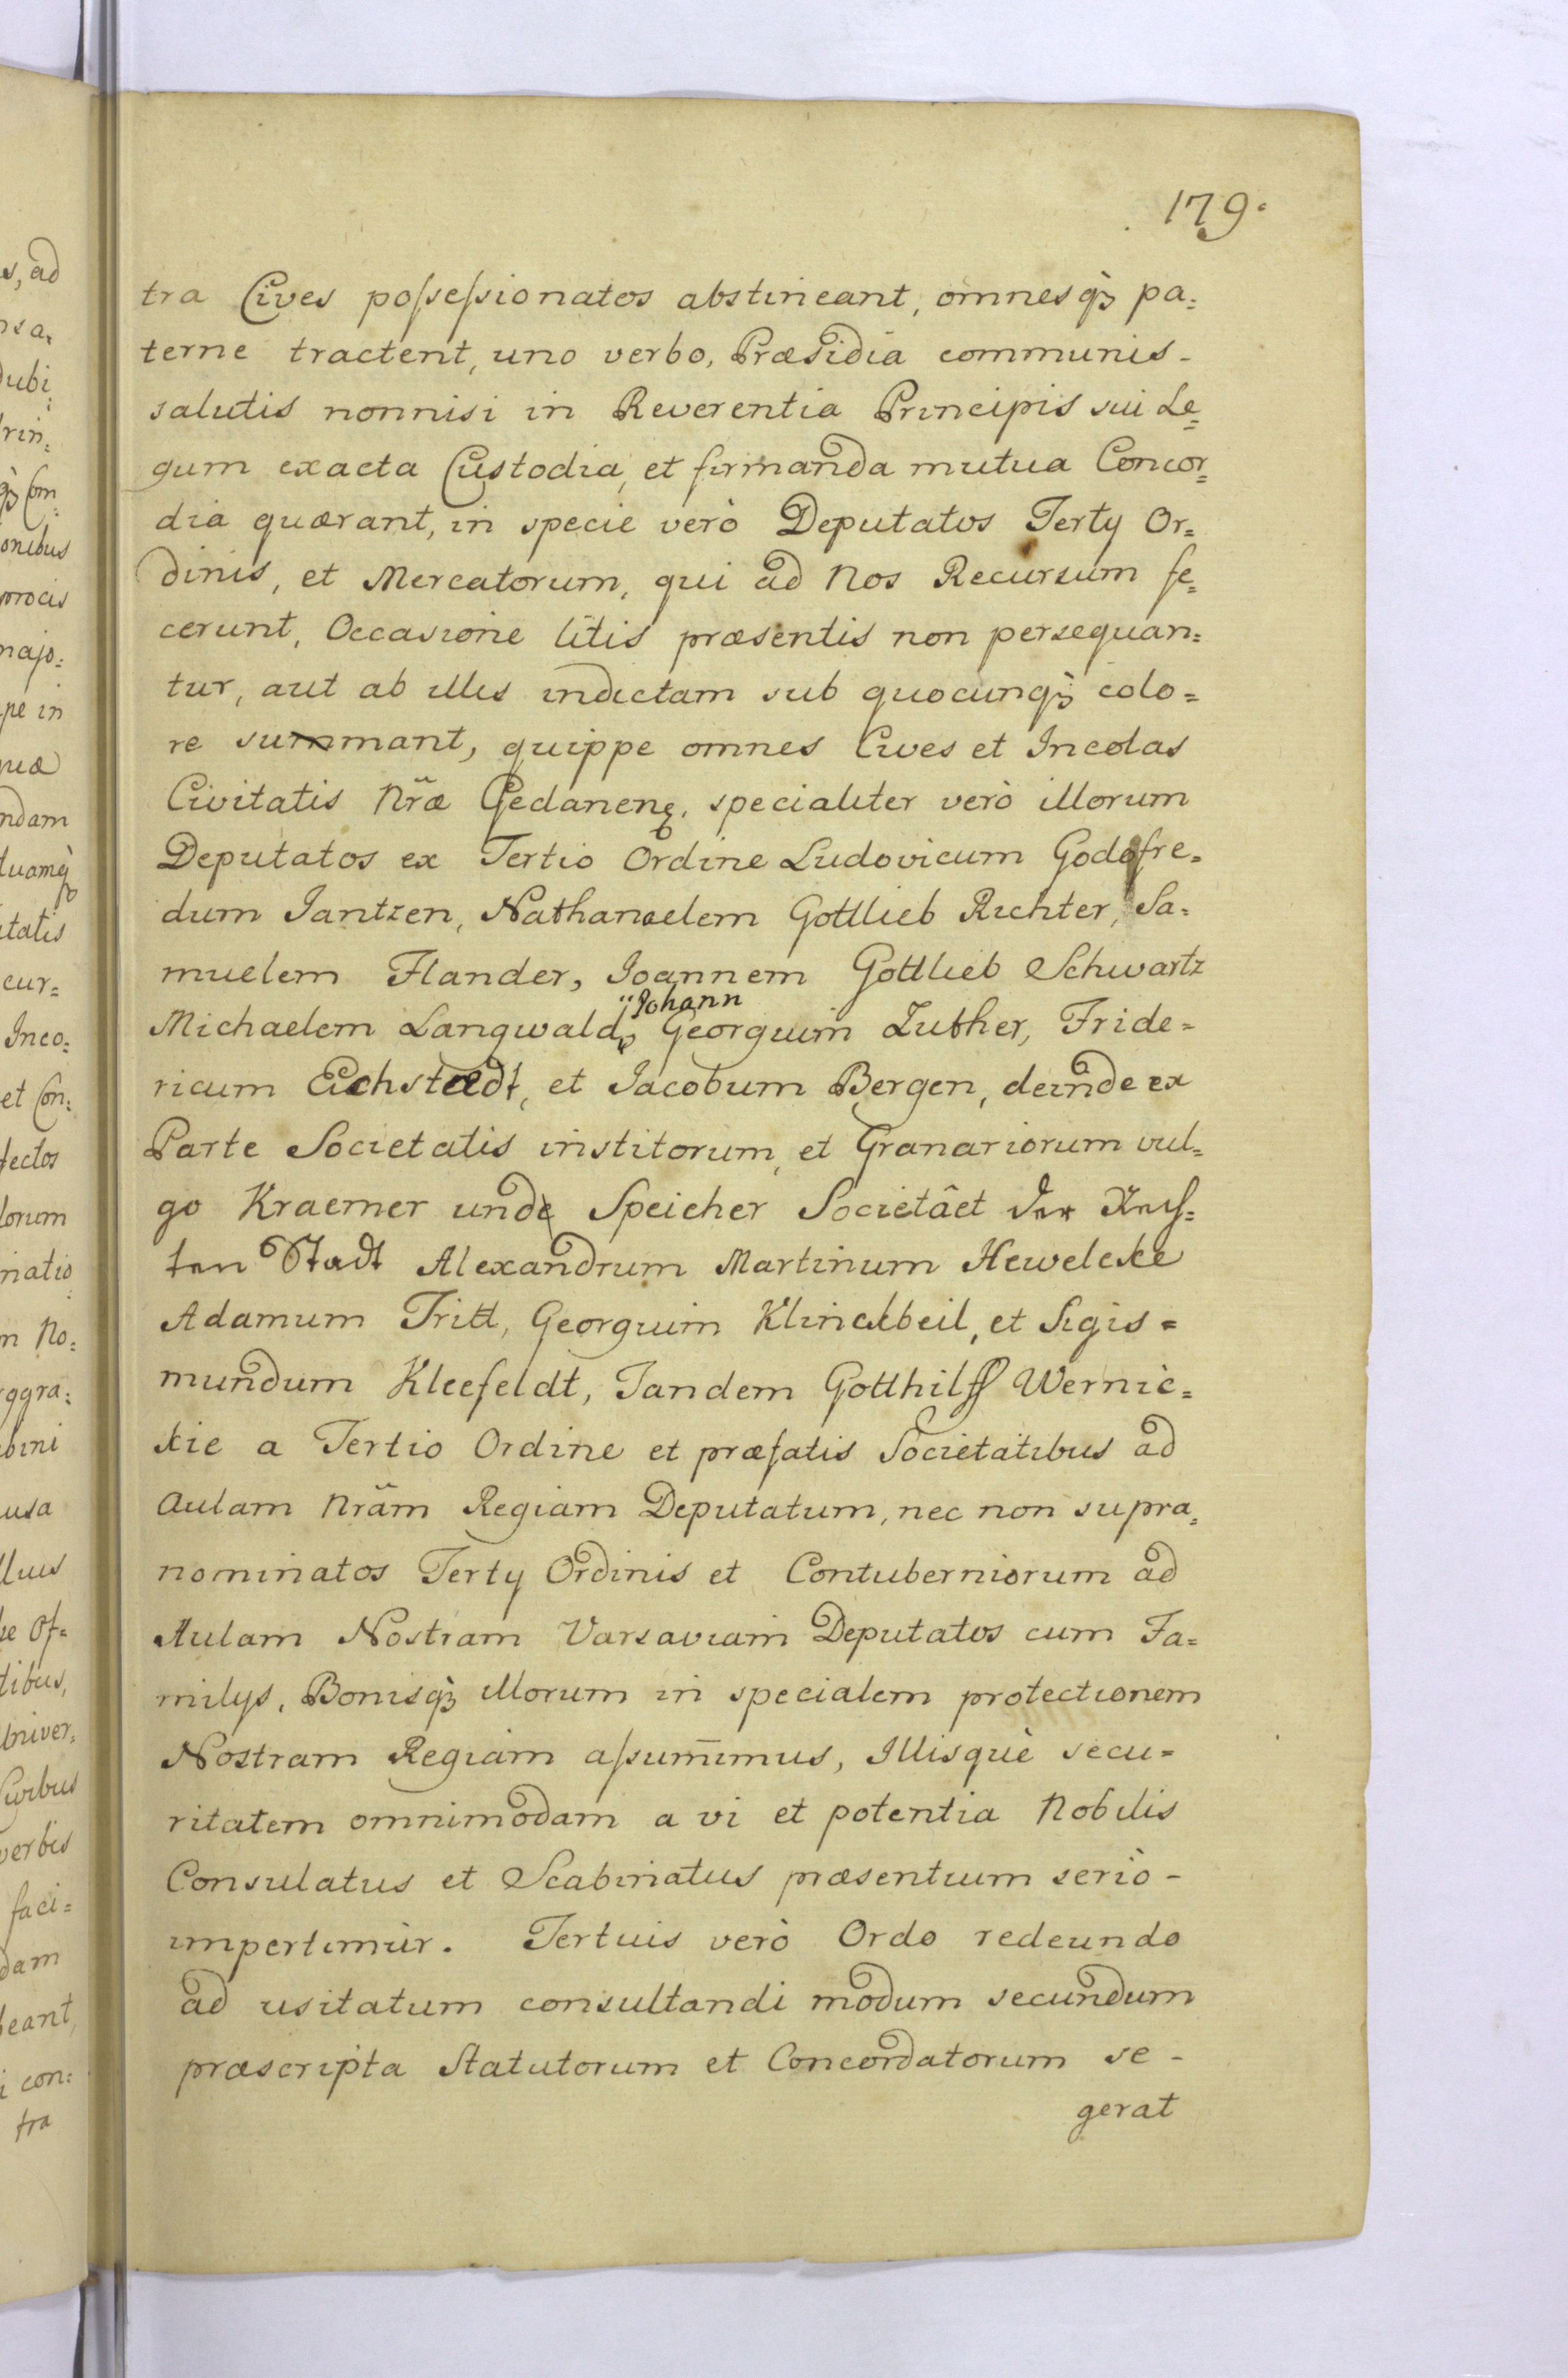 179.
tra Cives possessionatos abstineant, omnesq̀ꝫ pa=
terne tractent, uno verbo, Præsidia communis-
salutis nonnisi in Reverentia Principis sui Le=
gum exacta Custodia, et firmanda mutua Concor=
dia quærant, in specie verò Deputatos Tertÿ Or=
dinis, et Mercatorum, qui ad Nos Recursum fe=
cerunt, Occasione litis præsentis non persequan=
tur, aut ab illis indictam sub quocunq̀ꝫ colo=
re summant, quippe omnes Cives et Incolas
Civitatis Nr̃æ Gedanenꝫ, specialiter verò illorum
Deputatos ex Tertio Ordine Ludovicum Godofre=
dum Jantzen, Nathanaelem Gottlieb Richter, Sa=
muelem Flander, Joannem Gottlieb Schwartz
Johann
Michaelem Langwald, Georgium Zuther, Fride=
ricum Eichstædt, et Jacobum Bergen, deinde ex
Parte Societatis institorum, et Granariorum vul=
go Kraemer unde Speicher Societâet der Rech=
ten Stadt Alexandrum Martinum Hewelcke
Adamum Tritt, Georgium Klinckbeil, et Sigis=
mundum Kleefeldt, Tandem Gotthilff Wernic=
kie a Tertio Ordine et præfatis Societatibus ad
Aulam Nr̃am Regiam Deputatum, nec non supra=
nominatos Tertÿ Ordinis et Contuberniorum ad
Aulam Nostram Varsaviam Deputatos cum Fa=
milÿs, Bonisq̀ꝫ illorum in specialem protectionem
Nostram Regiam assum̄imus, Illisquè secu=
ritatem omnimodam a vi et potentia Nobilis
Consulatus et Scabinatus præsentium seriò-
impertimùr. Tertius verò Ordo redeundo
ad usitatum consultandi modum secundum
præscripta Statutorum et Concordatorum se-
gerat
s, ad
dubi
rin=
onibus
procis
majo=
pe in
quæ
ndam
tatis
cur=
Inco=
et Con=
fectos
lorum
natio
m No=
ggra=
bini
usa
Of=
tibus,
univer=
verbis
faci=
dam
beant,
i con=
tra